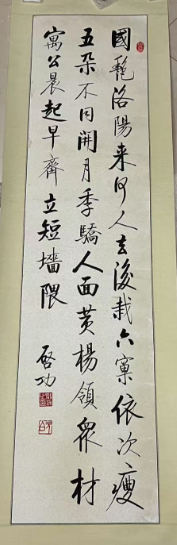 國豔洛陽来何人去後栽六窠依次瘦
五朶不同開月季驕人面黄楊領衆材
寓公晨起早齊立短墻隈
啓功